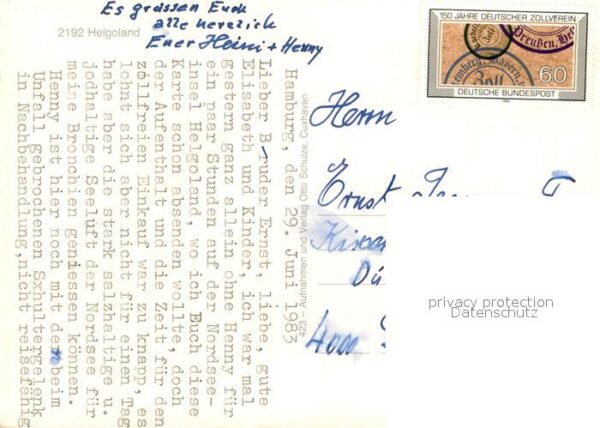 Es grüssen Euch
alle herzlich
Euer Heini + Henny
2192 Helgoland
Hamburg, den 29. Juni 1983
Lieber Bruder Ernst, liebe, gute
Elisabeth und Kinder, ich war mal
gestern ganz allein ohne Henny für
ein paar Stunden auf der Nordsee-
insel Helgoland, wo ich Euch diese
Karte schon absenden wollte, doch
der Aufenthalt und die Zeit für den
zollfreien Einkauf war zu knapp, es
lohnt sich aber nicht für einen Tag
habe aber die stark salzhaltige u.
jodhaltige Seeluft der Nordsee für
meine Bronchien geniessen können.
Henny ist hier noch mit dem beim
Unfall gebrochenen Sxhultergelenk
in Nachbehandlung, nicht reisefähig
423 - Aufnahmen und Verlag Otto Schütze, Cuxhaven
150 JAHRE DEUTSCHER ZOLLVEREIN
Preußen, He
Bayern
Zoll
60
DEUTSCHE BUNDESPOST
Herrn
Ernst
Dü
4000
privacy protection
Datenschutz